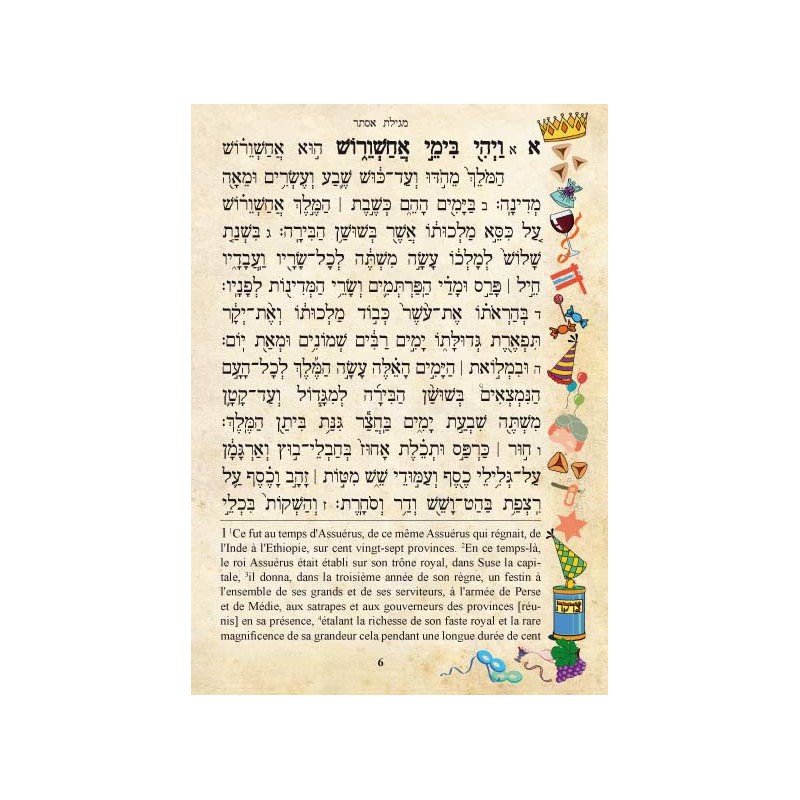 מגילת אסתר
א א וַיְהִ֖י בִּימֵ֣י אֲחַשְׁוֵר֑וֹשׁ ה֣וּא אֲחַשְׁוֵר֗וֹשׁ
הַמֹּלֵךְ֙ מֵהֹ֣דּוּ וְעַד־כּ֔וּשׁ שֶׁ֛בַע וְעֶשְׂרִ֥ים וּמֵאָ֖ה
מְדִינָֽה׃ ב בַּיָּמִ֖ים הָהֵ֑ם כְּשֶׁ֣בֶת | הַמֶּ֣לֶךְ אֲחַשְׁוֵר֗וֹשׁ
עַ֚ל כִּסֵּ֣א מַלְכוּת֔וֹ אֲשֶׁ֖ר בְּשׁוּשַׁ֥ן הַבִּירָֽה׃ ג בִּשְׁנַ֤ת
שָׁלוֹשׁ֙ לְמָלְכ֔וֹ עָשָׂ֣ה מִשְׁתֶּ֔ה לְכָל־שָׂרָ֖יו וַעֲבָדָ֑יו
חֵ֣יל | פָּרַ֣ס וּמָדַ֗י הַֽפַּרְתְּמִ֛ים וְשָׂרֵ֥י הַמְּדִינ֖וֹת לְפָנָֽיו׃
ד בְּהַרְאֹת֗וֹ אֶת־עֹ֙שֶׁר֙ כְּב֣וֹד מַלְכוּת֔וֹ וְאֶ֨ת־יְקָ֔ר
תִּפְאֶ֖רֶת גְּדוּלָּת֑וֹ יָמִ֣ים רַבִּ֔ים שְׁמוֹנִ֥ים וּמְאַ֖ת יֽוֹם׃
ה וּבִמְל֣וֹאת | הַיָּמִ֣ים הָאֵ֗לֶּה עָשָׂ֣ה הַמֶּ֡לֶךְ לְכָל־הָעָ֣ם
הַנִּמְצְאִים֩ בְּשׁוּשַׁ֨ן הַבִּירָ֜ה לְמִגָּ֧דוֹל וְעַד־קָטָ֛ן
מִשְׁתֶּ֖ה שִׁבְעַ֣ת יָמִ֑ים בַּחֲצַ֕ר גִּנַּ֥ת בִּיתַ֖ן הַמֶּֽלֶךְ׃
ו ח֣וּר | כַּרְפַּ֣ס וּתְכֵ֗לֶת אָחוּז֙ בְּחַבְלֵי־ב֣וּץ וְאַרְגָּמָ֔ן
עַל־גְּלִ֥ילֵי כֶ֖סֶף וְעַמּ֣וּדֵי שֵׁ֑שׁ מִטּ֣וֹת | זָהָ֣ב וָכֶ֗סֶף עַ֛ל
רִֽצְפַ֥ת בַּהַט־וָשֵׁ֖שׁ וְדַ֥ר וְסֹחָֽרֶת׃ ז וְהַשְׁקוֹת֙ בִּכְלֵ֣י
I ¹Ce fut au temps d'Assuérus, de ce même Assuérus qui régnait, de
l'Inde à l'Ethiopie, sur cent vingt-sept provinces. ²En ce temps-là,
le roi Assuérus était établi sur son trône royal, dans Suse la capi-
tale, ³il donna, dans la troisième année de son règne, un festin à
l'ensemble de ses grands et de ses serviteurs, à l'armée de Perse
et de Médie, aux satrapes et aux gouverneurs des provinces [réu-
nis] en sa présence, ⁴étalant la richesse de son faste royal et la rare
magnificence de sa grandeur cela pendant une longue durée de cent
6
צדקה